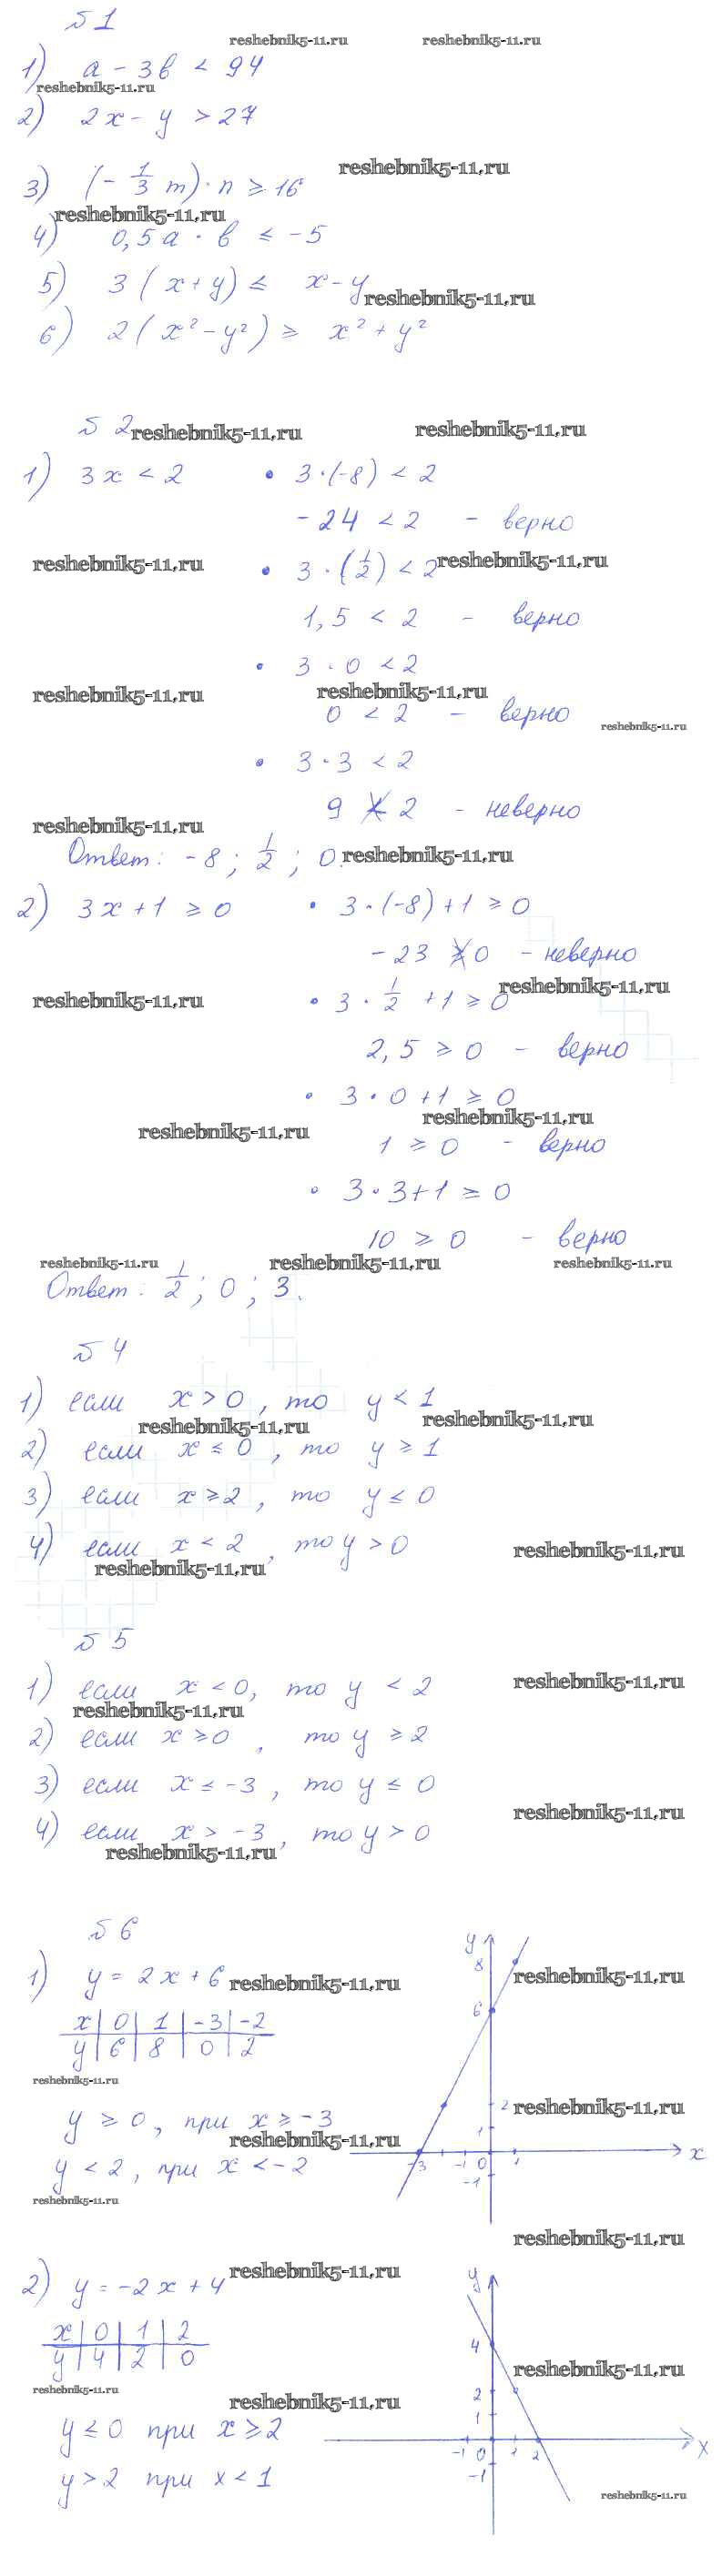 №1
reshebnik5-11.ru reshebnik5-11.ru
1) a - 3b < 94
reshebnik5-11.ru
2) 2x - y > 27
reshebnik5-11.ru
3) (- 1/3 m) · n ≥ 16
reshebnik5-11.ru
4) 0,5a · b ≤ -5
5) 3 (x + y) ≤ x - y
reshebnik5-11.ru
6) 2 (x² - y²) ≥ x² + y²
№ 2
reshebnik5-11.ru reshebnik5-11.ru
1) 3x < 2 • 3·(-8) < 2
-24 < 2 - верно
reshebnik5-11.ru • 3 · (1/2) < 2 reshebnik5-11.ru
1,5 < 2 - верно
• 3 · 0 < 2
reshebnik5-11.ru reshebnik5-11.ru
0 < 2 - верно reshebnik5-11.ru
• 3 · 3 < 2
9 ≮ 2 - неверно
reshebnik5-11.ru
Ответ: -8; 1/2; 0. reshebnik5-11.ru
2) 3x + 1 ≥ 0 • 3·(-8) + 1 ≥ 0
-23 ≱ 0 - неверно
reshebnik5-11.ru • 3 · 1/2 + 1 ≥ 0 reshebnik5-11.ru
2,5 ≥ 0 - верно
• 3 · 0 + 1 ≥ 0
reshebnik5-11.ru reshebnik5-11.ru
1 ≥ 0 - верно
• 3 · 3 + 1 ≥ 0
10 ≥ 0 - верно
reshebnik5-11.ru reshebnik5-11.ru reshebnik5-11.ru
Ответ: 1/2; 0; 3.
№ 4
1) если x > 0, то y < 1
reshebnik5-11.ru reshebnik5-11.ru
2) если x ≤ 0, то y ≥ 1
3) если x ≥ 2, то y ≤ 0
4) если x < 2, то y > 0
reshebnik5-11.ru reshebnik5-11.ru
№ 5
1) если x < 0, то y < 2
reshebnik5-11.ru reshebnik5-11.ru
2) если x ≥ 0, то y ≥ 2
3) если x ≤ -3, то y ≤ 0
reshebnik5-11.ru
4) если x > -3, то y > 0
reshebnik5-11.ru
№ 6
y
8
1) y = 2x + 6 reshebnik5-11.ru reshebnik5-11.ru
6
x 0 1 -3 -2
y 6 8 0 2
reshebnik5-11.ru
2 reshebnik5-11.ru
y ≥ 0, при x ≥ -3
1
reshebnik5-11.ru
x
y < 2, при x < -2
-3 -1 0 1
-1
reshebnik5-11.ru
reshebnik5-11.ru
2) y = -2x + 4 reshebnik5-11.ru
y
x 0 1 2
4
y 4 2 0
reshebnik5-11.ru
reshebnik5-11.ru
2
reshebnik5-11.ru
1
y ≤ 0 при x ≥ 2
x
-1 0 1 2
-1
y > 2 при x < 1
reshebnik5-11.ru